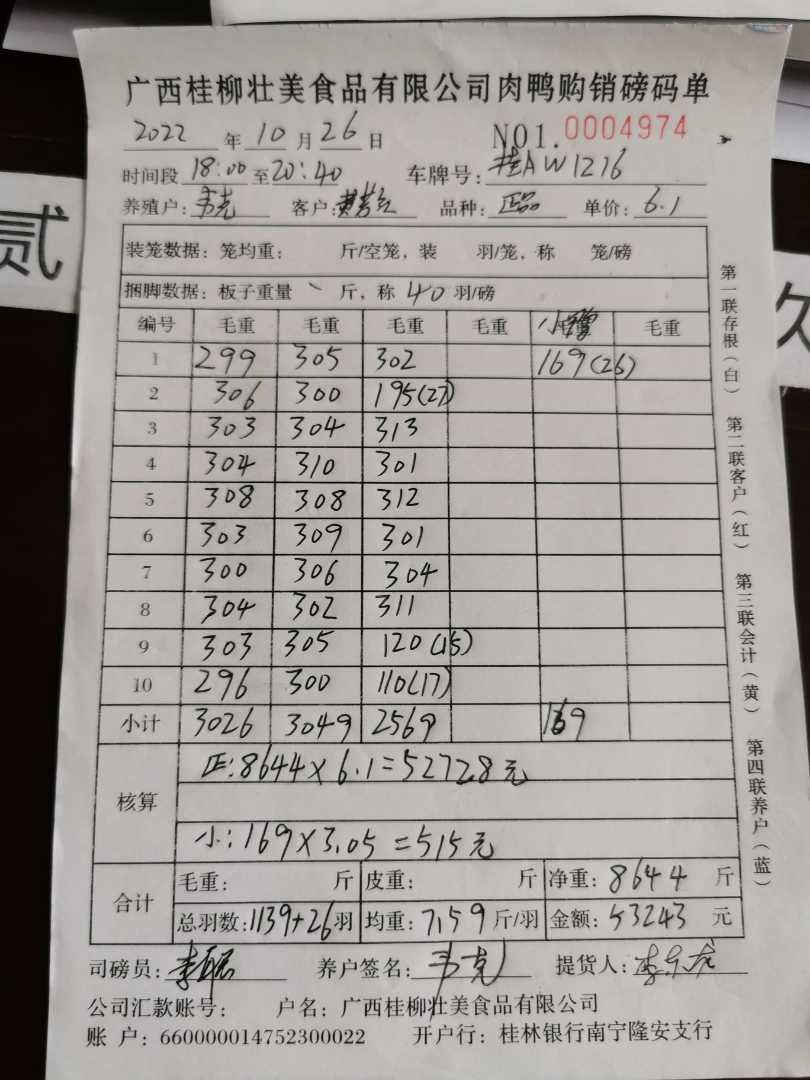 广西桂柳壮美食品有限公司肉鸭购销磅码单
2022 年 10 月 26 日 NO1. 0004974
时间段 18:00 至 20:40 车牌号: 桂AW1216
养殖户: 韦克 客户: 品种: 正品 单价: 6.1
装笼数据: 笼均重: 斤/空笼, 装 羽/笼, 称 笼/磅
捆脚数据: 板子重量 斤, 称 40 羽/磅
编号 毛重 毛重 毛重 毛重 小 毛重
1 299 305 302 169(26)
2 306 300 195(27)
3 303 304 313
4 304 310 301
5 308 308 312
6 303 309 301
7 300 306 304
8 304 302 311
9 303 305 120(15)
10 296 300 110(17)
小计 3026 3049 2569 169
核算
正:8644×6.1=52728元
小:169×3.05=515元
合计
毛重: 斤 皮重: 斤 净重: 8644 斤
总羽数: 1139+26 羽 均重: 7.59 斤/羽 金额: 53243 元
司磅员: 养户签名: 韦克 提货人:
公司汇款账号: 户名: 广西桂柳壮美食品有限公司
账 户: 660000014752300022 开户行: 桂林银行南宁隆安支行
第一联存根(白) 第二联客户(红) 第三联会计(黄) 第四联养户(蓝)
贰
久